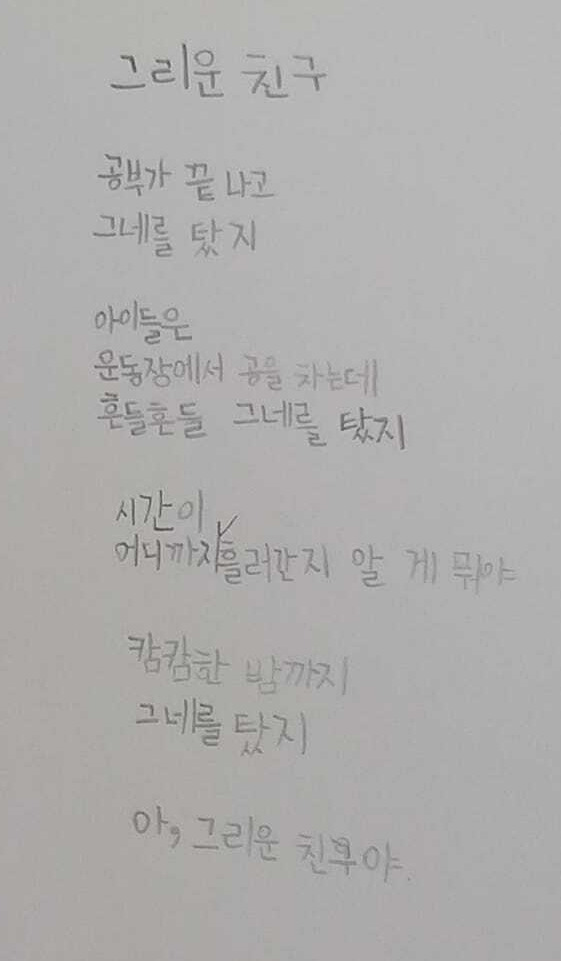 그리운 친구
공부가 끝나고
그네를 탔지
아이들은
운동장에서 공을 차는데
흔들흔들 그네를 탔지
시간이
어디까지 흘러간지 알 게 뭐야
캄캄한 밤까지
그네를 탔지
아, 그리운 친구야.